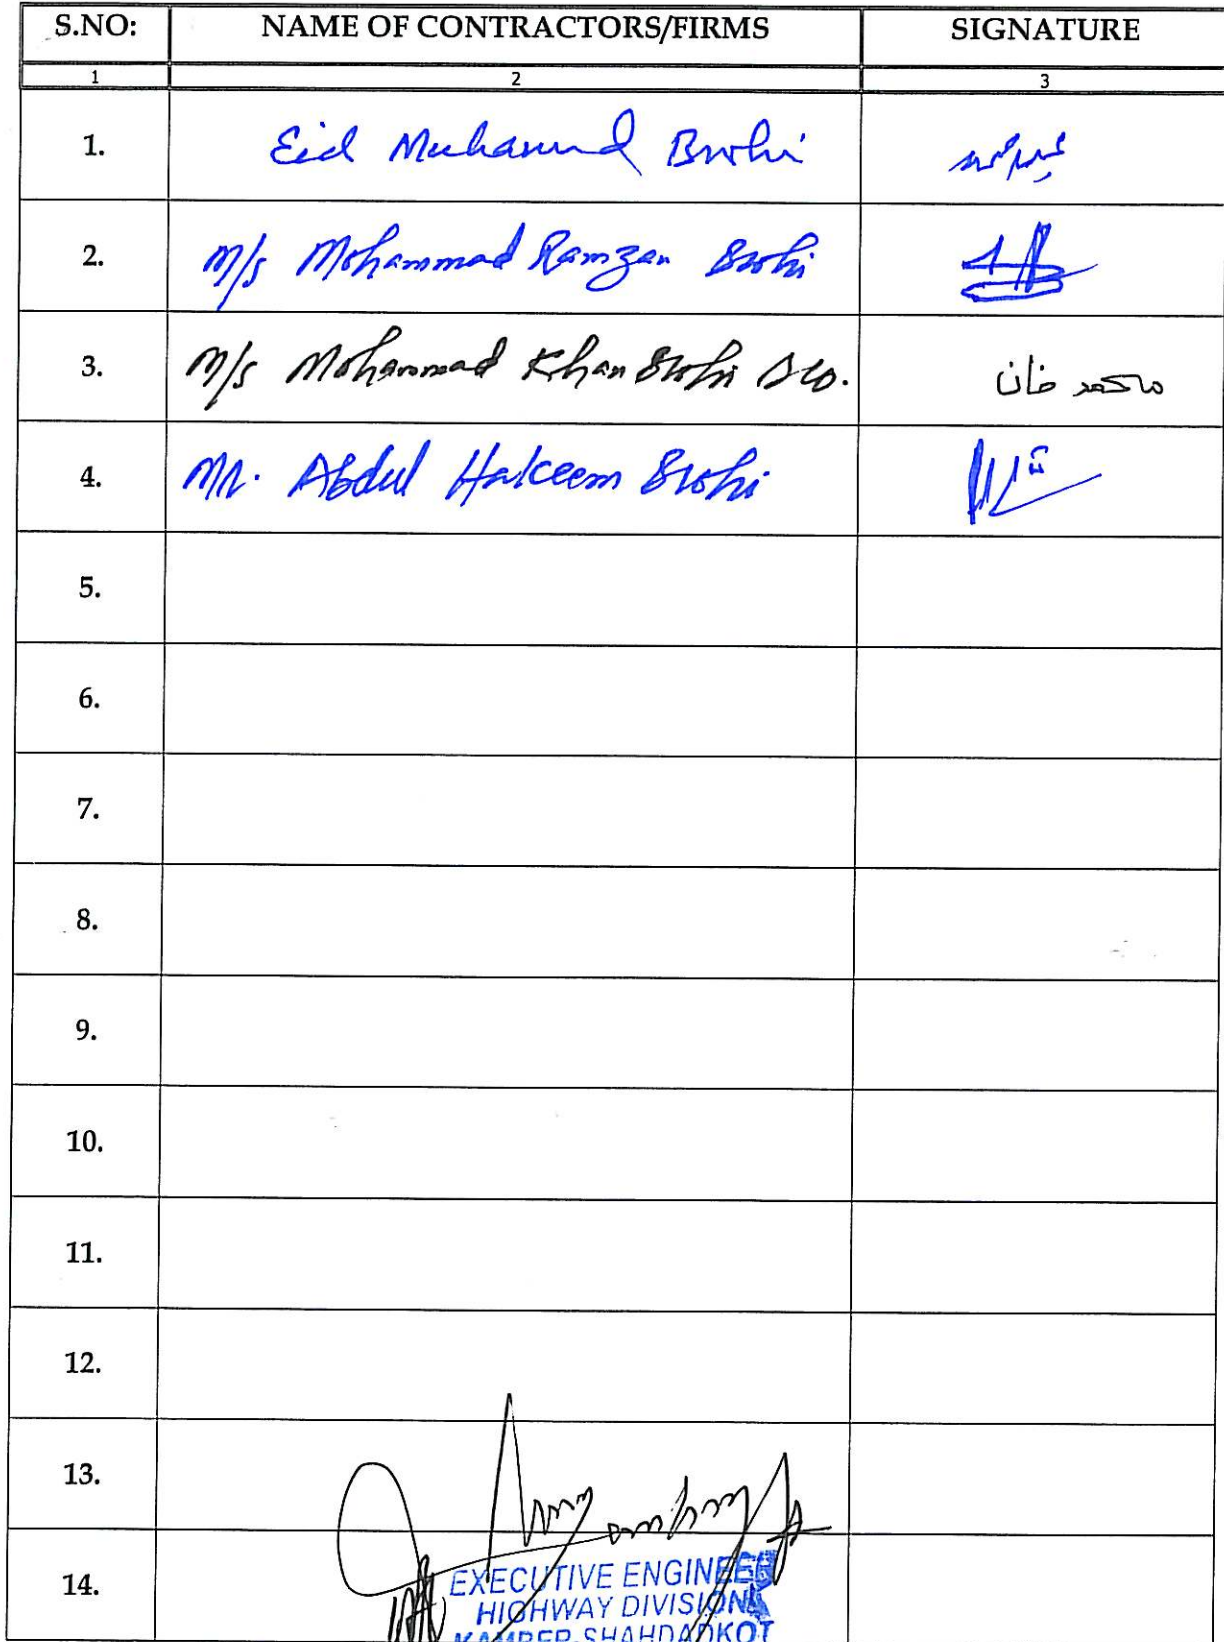 S.NO: NAME OF CONTRACTORS/FIRMS SIGNATURE
1 2 3
1. Eid Muhammad Brohi
2. M/s Mohammad Ramzan Brohi
3. M/s Mohammad Khan Brohi & Co. محمد خان
4. Mr. Abdul Hakeem Brohi
5.
6.
7.
8.
9.
10.
11.
12.
13.
14.
EXECUTIVE ENGINEER
HIGHWAY DIVISION
KAMBER-SHAHDADKOT